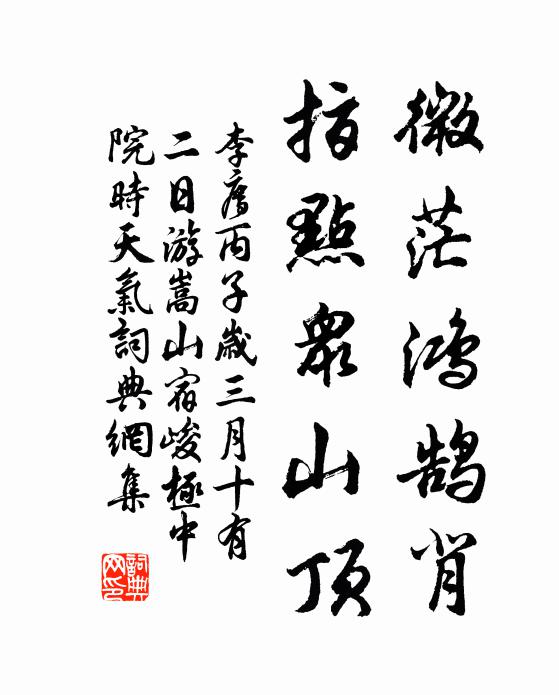 微茫鴻鵠背
指點衆山頂
李廌丙子歲三月十有
二日游嵩山宿峻極中
院時天氣詞典網集
詞典
网印